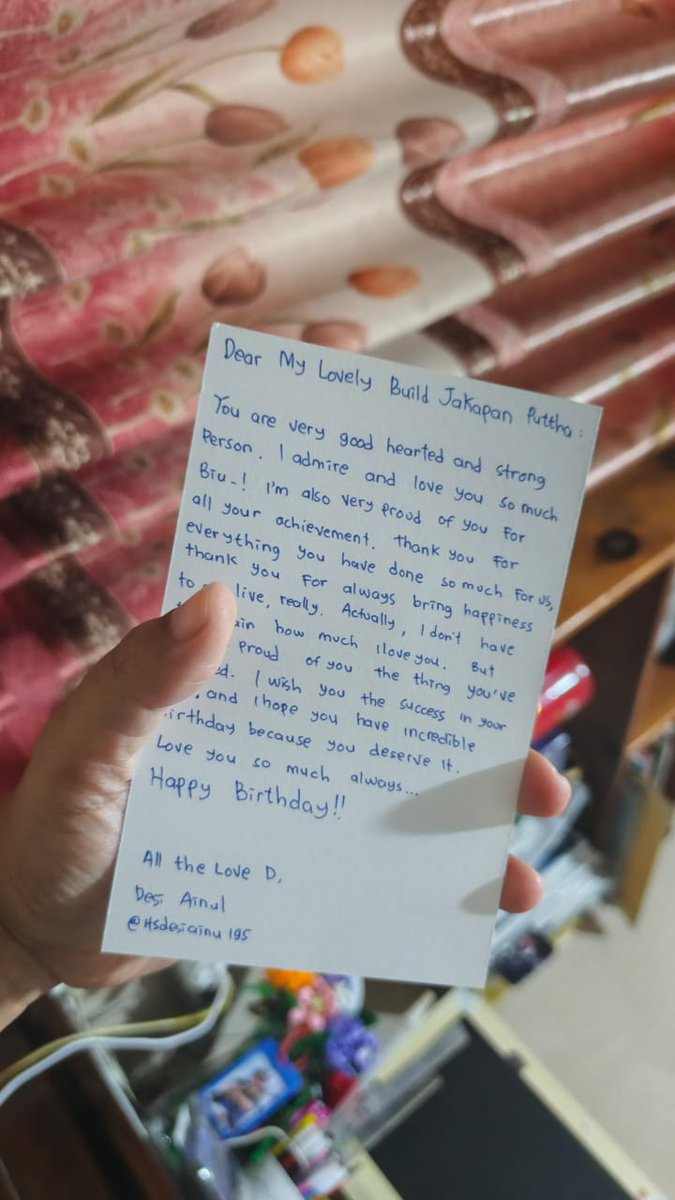 Dear My Lovely Build Jakapan Puttha :
You are very good hearted and strong
Person. I admire and love you so much
Biu..! I'm also very proud of you for
all your achievement. Thank you for
everything you have done so much for us,
thank you for always bring happiness
to live, really. Actually, I don't have
how much I love you. But
Proud of you the thing you've
I wish you the success in your
and I hope you have incredible
birthday because you deserve it.
Love you so much always...
Happy Birthday!!
All the Love D,
Desi Ainul